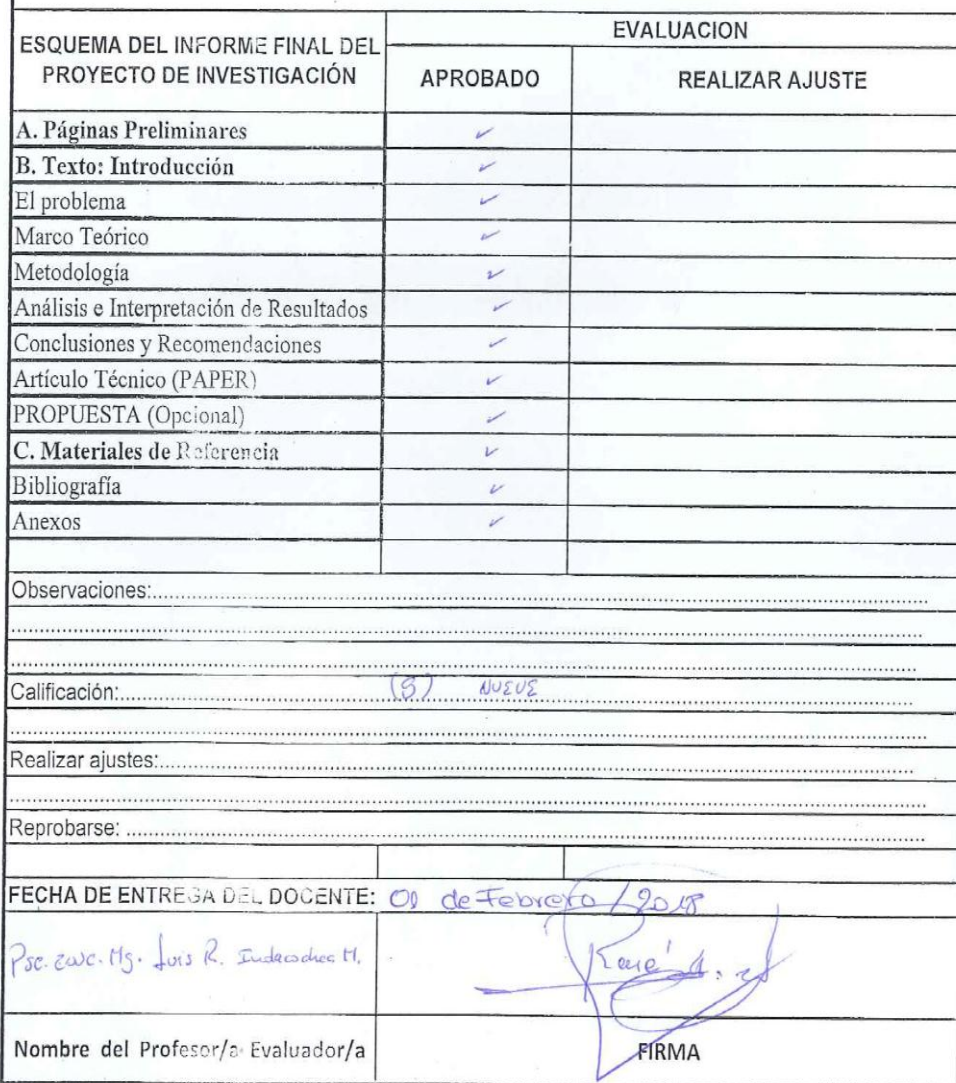 ESQUEMA DEL INFORME FINAL DEL PROYECTO DE INVESTIGACIÓN
EVALUACION
APROBADO
REALIZAR AJUSTE
A. Páginas Preliminares ✓
B. Texto: Introducción ✓
El problema ✓
Marco Teórico ✓
Metodología ✓
Análisis e Interpretación de Resultados ✓
Conclusiones y Recomendaciones ✓
Artículo Técnico (PAPER) ✓
PROPUESTA (Opcional) ✓
C. Materiales de Referencia ✓
Bibliografía ✓
Anexos ✓
Observaciones:
Calificación: (9) NUEVE
Realizar ajustes:
Reprobarse:
FECHA DE ENTREGA DEL DOCENTE: 01 de Febrero / 2018
Mg. Luis R. M.
Nombre del Profesor/a Evaluador/a
FIRMA